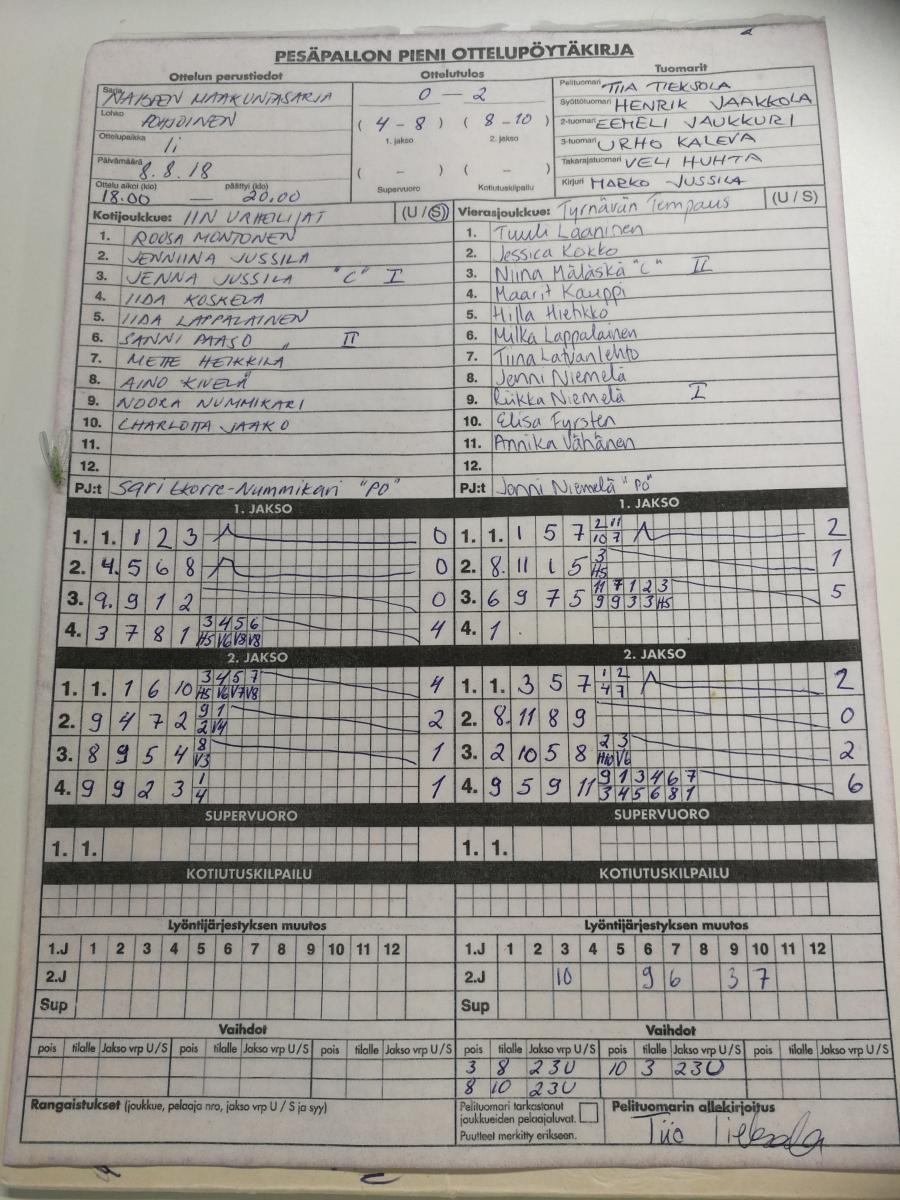 PESÄPALLON PIENI OTTELUPÖYTÄKIRJA
Ottelun perustiedot
Sarja NAISTEN MAAKUNTASARJA
Lohko POHJOINEN
Ottelupaikka Ii
Päivämäärä 8.8.18
Ottelu alkoi (klo) päättyi (klo)
18.00 — 20.00
Ottelutulos
0 — 2
( 4 - 8 ) ( 8 - 10 )
1. jakso 2. jakso
( - ) ( - )
Supervuoro Kotiutuskilpailu
Tuomarit
Pelituomari TIIA TIEKSOLA
Syöttötuomari HENRIK JAAKKOLA
2-tuomari EEMELI JAUKKURI
3-tuomari URHO KALEVA
Takarajatuomari VELI HUHTA
Kirjuri MARKO JUSSILA
Kotijoukkue: IIN URHEILIJAT (U / S)
1. ROOSA MONTONEN
2. JENNIINA JUSSILA
3. JENNA JUSSILA "C" I
4. IIDA KOSKELA
5. IIDA LAPPALAINEN
6. SANNI PAASO II
7. METTE HEIKKILÄ
8. AINO KIVELÄ
9. NOORA NUMMIKARI
10. CHARLOTTA JAAKO
11.
12.
PJ:t Sari Ekorre-Nummikari "PO"
Vierasjoukkue: Tyrnävän Tempaus (U / S)
1. Tuuli Laaninen
2. Jessica Kokko
3. Niina Mäläskä "C" II
4. Maarit Kauppi
5. Hilla Hietikko
6. Milka Lappalainen
7. Tiina Latvanlehto
8. Jenni Niemelä
9. Riikka Niemelä I
10. Elisa Fyrsten
11. Annika Vähänen
12.
PJ:t Jonni Niemelä "PO"
1. JAKSO
1. 1. 1 2 3 0
2. 4. 5 6 8 0
3. 9. 9 1 2 0
3 4 5 6
4. 3 7 8 1 H5 V6 V8 V8 4
1. JAKSO
2 11
1. 1. 1 5 7 10 7 2
3
2. 8. 11 1 5 H5 1
11 7 1 2 3
3. 6 9 7 5 9 9 3 3 H5 5
4. 1
2. JAKSO
3 4 5 7
1. 1. 1 6 10 H5 V6 V7 V8 4
9 1
2. 9 4 7 2 2 V4 2
8
3. 8 9 5 4 V3 1
1
4. 9 9 2 3 4 1
2. JAKSO
1 2
1. 1. 3 5 7 4 7 2
2. 8. 11 8 9 0
2 3
3. 2 10 5 8 H10 V6 2
9 1 3 4 6 7
4. 9 5 9 11 3 4 5 6 8 1 6
SUPERVUORO
1. 1.
SUPERVUORO
1. 1.
KOTIUTUSKILPAILU
KOTIUTUSKILPAILU
Lyöntijärjestyksen muutos
1.J 1 2 3 4 5 6 7 8 9 10 11 12
2.J
Sup
Lyöntijärjestyksen muutos
1.J 1 2 3 4 5 6 7 8 9 10 11 12
2.J 10 9 6 3 7
Sup
Vaihdot
pois tilalle Jakso vrp U/S pois tilalle Jakso vrp U/S pois tilalle Jakso vrp U/S
Vaihdot
pois tilalle Jakso vrp U/S pois tilalle Jakso vrp U/S pois tilalle Jakso vrp U/S
3 8 2 3 U 10 3 2 3 U
8 10 2 3 U
Rangaistukset (joukkue, pelaaja nro, jakso vrp U / S ja syy)
Pelituomari tarkastanut
joukkueiden pelaajaluvat.
Puutteet merkitty erikseen.
Pelituomarin allekirjoitus
Tiia Tieksola